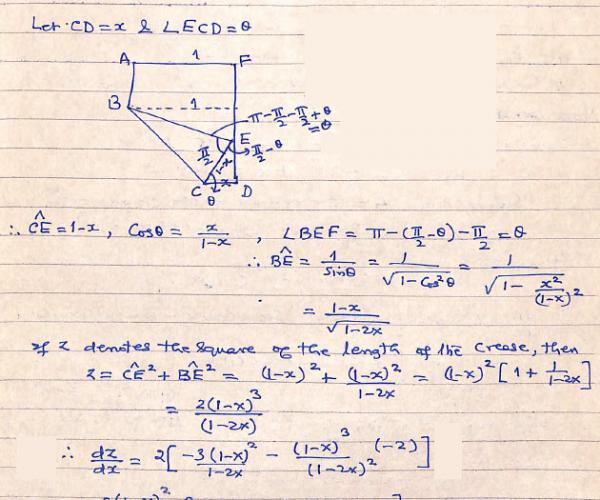 Let CD = x & ∠ECD = θ
A 1 F
B 1
π - π/2 - π/2 + θ
= θ
E
π/2
π/2 - θ
1-x
C x D
θ
∴ ĈE = 1-x, Cosθ = x/(1-x), ∠BEF = π - (π/2 - θ) - π/2 = θ
∴ B̂E = 1/Sinθ = 1/√(1-Cos²θ) = 1/√(1 - x²/(1-x)²)
= (1-x)/√(1-2x)
If z denotes the square of the length of the crease, then
z = ĈE² + B̂E² = (1-x)² + (1-x)²/(1-2x) = (1-x)² [1 + 1/(1-2x)]
= 2(1-x)³/(1-2x)
∴ dz/dx = 2[-3(1-x)²/(1-2x) - (1-x)³/(1-2x)² (-2)]